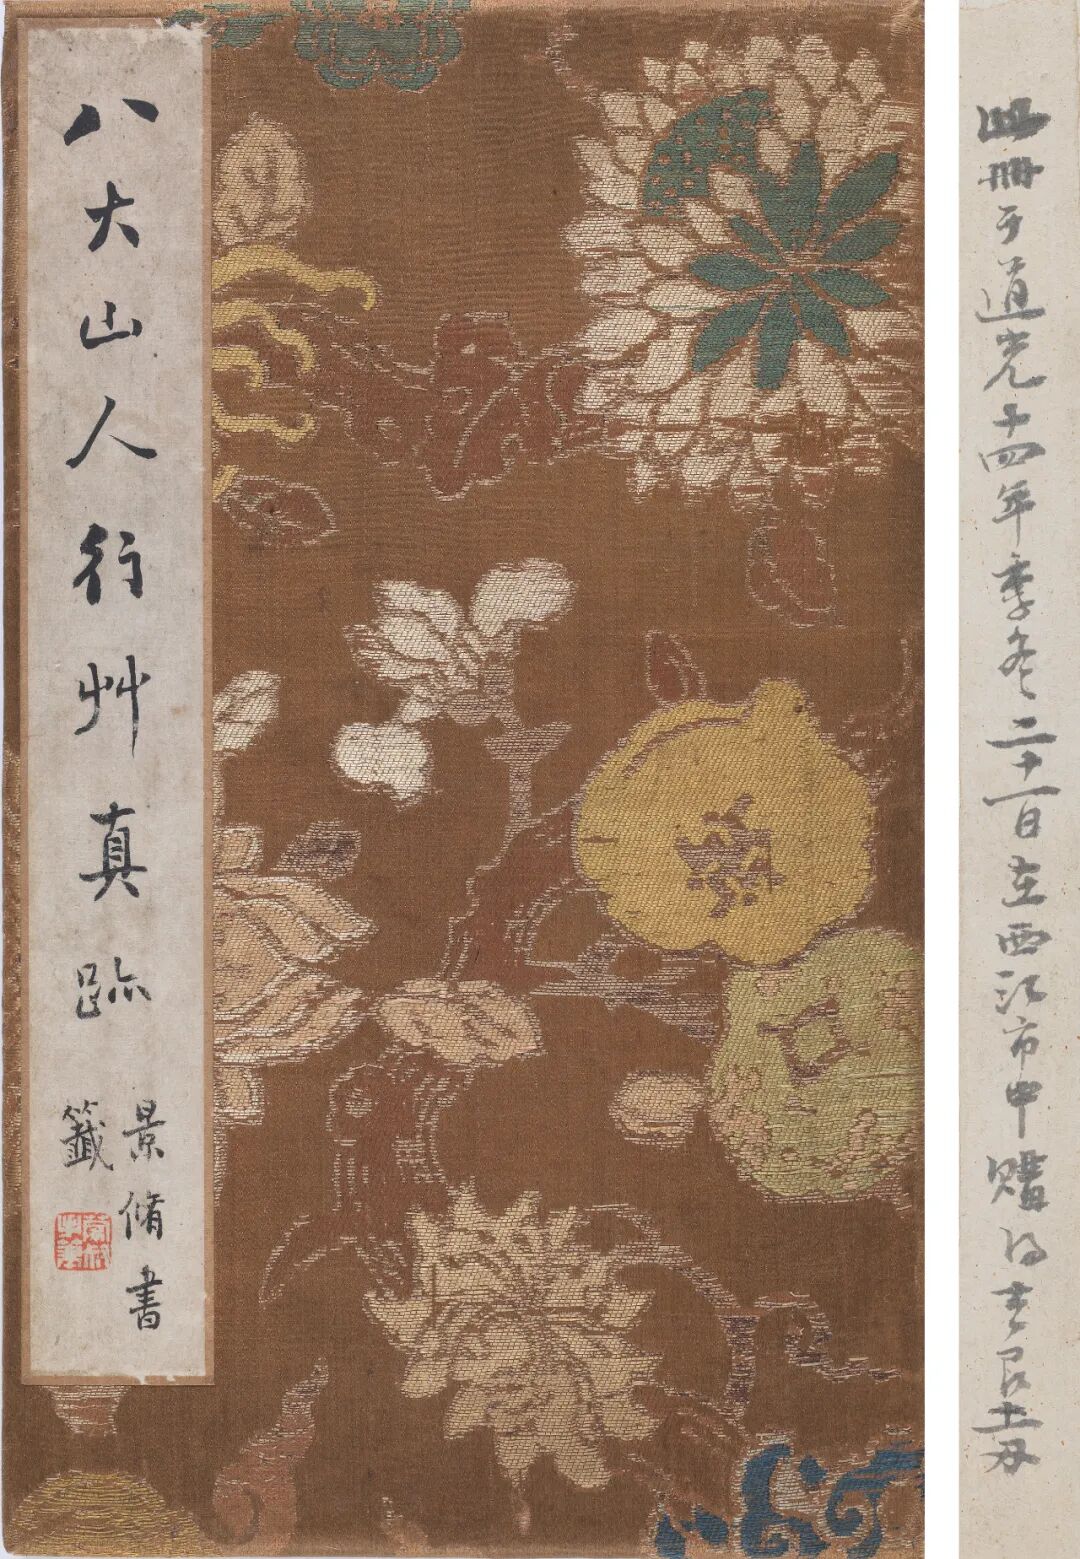 八大山人行艸真跡
景脩書
籤
此冊于道光十四年季冬二十一日在西江市中購得去艮